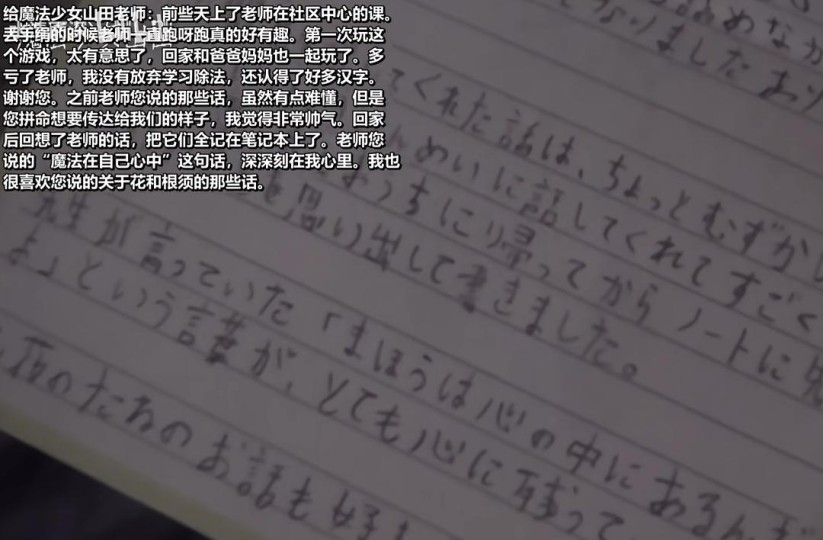 给魔法少女山田老师：前些天上了老师在社区中心的课。
丢手绢的时候老师一直跑呀跑真的好有趣。第一次玩这
个游戏，太有意思了，回家和爸爸妈妈也一起玩了。多
亏了老师，我没有放弃学习除法，还认得了好多汉字。
谢谢您。之前老师您说的那些话，虽然有点难懂，但是
您拼命想要传达给我们的样子，我觉得非常帅气。回家
后回想了老师的话，把它们全记在笔记本上了。老师您
说的“魔法在自己心中”这句话，深深刻在我心里。我也
很喜欢您说的关于花和根须的那些话。
なりました あり
てくれた話は、ちょっとむずかし
めいに話してくれてすごく
うちに帰ってから ノートに
思い出して書きました。
先生が言っていた「まほうは心の中にあるん
よ」という言葉が、とても心に残って
花のたねのお話も好き